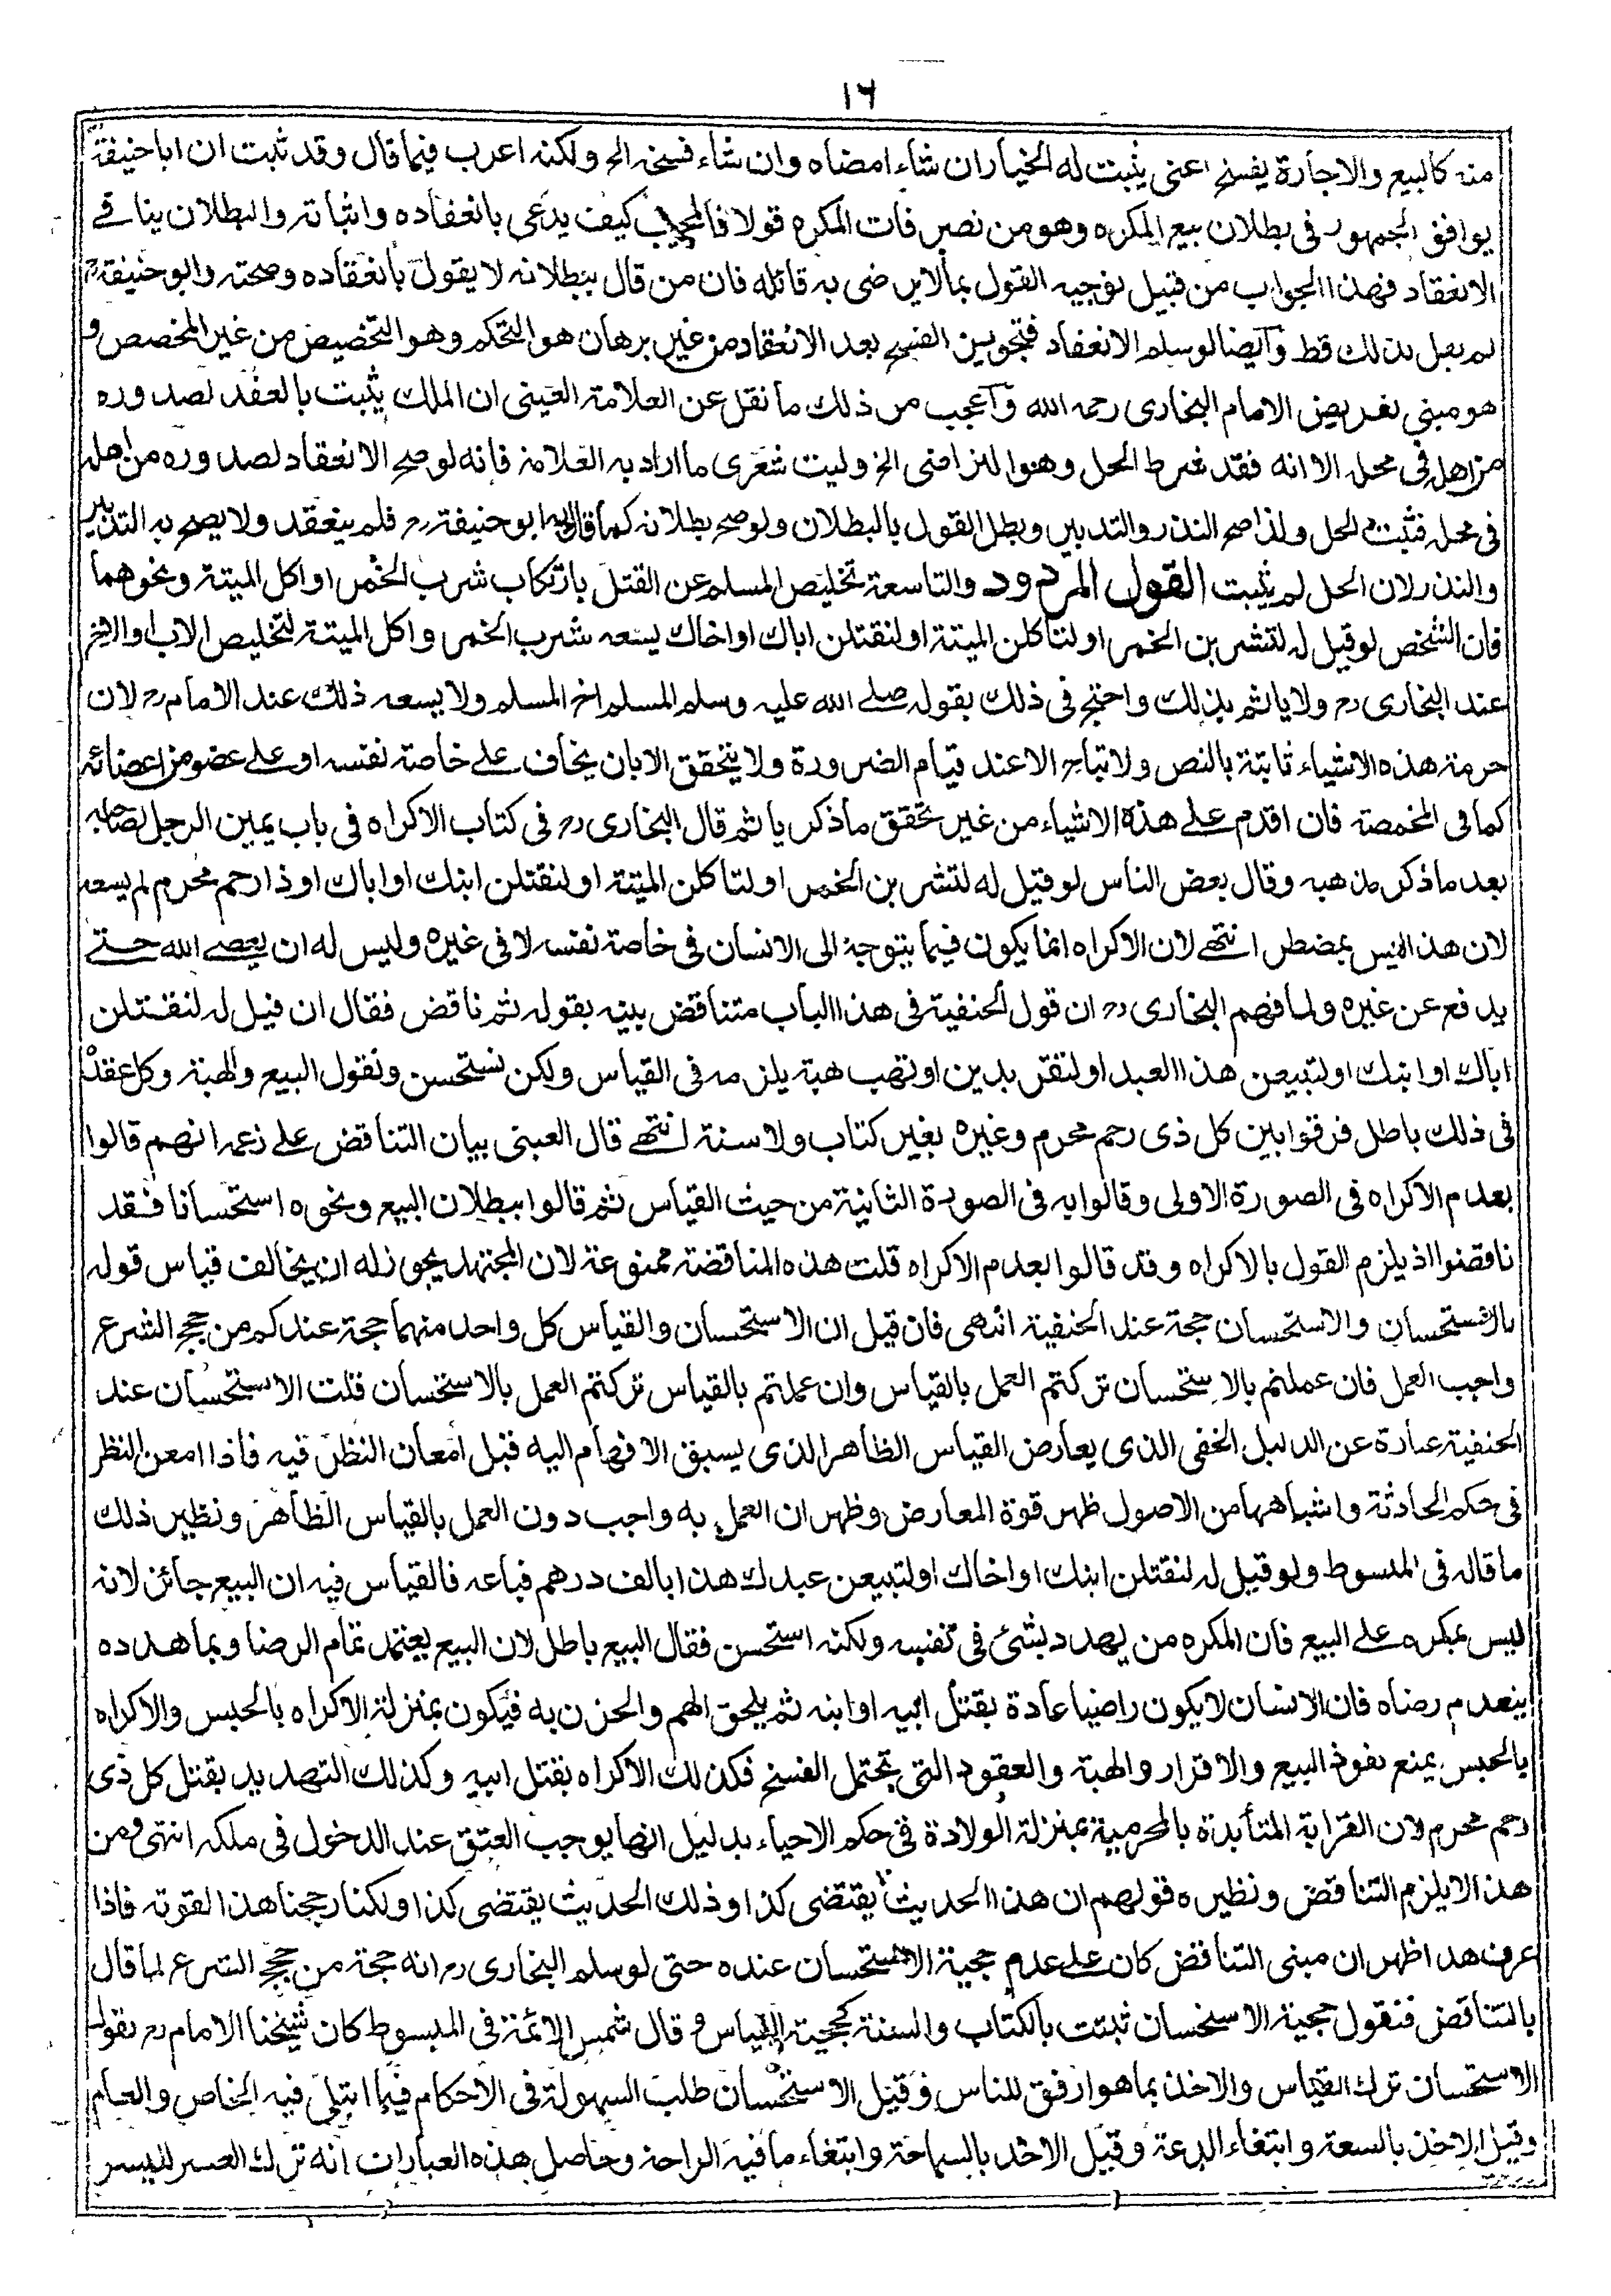 ١٦
منه كالبيع والاجارة يفسخ اعنى يثبت له الخيار ان شاء امضاه وان شاء فسخه الخ ولكنه اعرب فيما قال وقد ثبت ان ابا حنيفة
يوافق الجمهور فى بطلان بيع المكره وهو من نصبر فات المكره قولا فالمجيب كيف يدعى بانعقاده واثباته والبطلان ينافى
الانعقاد فهذا الجواب من قبيل توجيه القول بما لا يرضى به قائله فان من قال ببطلانه لا يقول بانعقاده وصحته وابو حنيفة رح
لم يقل بذلك قط وايضا لو سلم الانعقاد فتجويز الفسخ بعد الانعقاد من غير برهان هو التحكم وهو التخصيص من غير المخصص و
هو مبنى تعريض الامام البخارى رحمه الله واعجب من ذلك ما نقل عن العلامة العينى ان الملك يثبت بالعقد لصدوره
من اهله فى محله الا انه فقد شرط الحل وهو التراضى الخ وليت شعرى ما اراد به العلامة فانه لو صح الانعقاد لصدوره من اهله
فى محله فثبت الحل ولذا صح النذر والتدبير وبطل القول بالبطلان ولو صح بطلانه كما قال به ابو حنيفة رح فلم ينعقد ولا يصح به التدبير
والنذر لان الحل لم يثبت القول المردود والتاسعة تخليص المسلم عن القتل بارتكاب شرب الخمر او اكل الميتة ونحوهما
فان الشخص لو قيل له لتشربن الخمر او لتاكلن الميتة او لنقتلن اباك او اخاك يسعه شرب الخمر واكل الميتة لتخليص الاب والاخ
عند البخارى رح ولا ياثم بذلك واحتج فى ذلك بقوله صلى الله عليه وسلم المسلم اخ المسلم ولا يسعه ذلك عند الامام رح لان
حرمة هذه الاشياء ثابتة بالنص ولا تباح الا عند قيام الضرورة ولا يتحقق الا بان يخاف على خاصة نفسه او على عضو من اعضائه
كما فى المخمصة فان اقدم على هذه الاشياء من غير تحقق ما ذكر ياثم قال البخارى رح فى كتاب الاكراه فى باب يمين الرجل لصاحبه
بعد ما ذكر مذهبه وقال بعض الناس لو قيل له لتشربن الخمر او لتاكلن الميتة او لنقتلن ابنك او اباك او ذا رحم محرم لم يسعه
لان هذا ليس بمضطر انتهى لان الاكراه انما يكون فيما يتوجه الى الانسان فى خاصة نفسه لا فى غيره وليس له ان يعصى الله حتى
يدفع عن غيره ولما فهم البخارى رح ان قول الحنفية فى هذا الباب متناقض بينه بقوله ثم ناقض فقال ان قيل له لنقتلن
اباك او ابنك او لتبيعن هذا العبد او لتقر بدين او تهب هبة يلزمه فى القياس ولكن نستحسن ونقول البيع والهبة وكل عقدة
فى ذلك باطل فرقوا بين كل ذى رحم محرم وغيره بغير كتاب ولا سنة انتهى قال العينى بيان التناقض على زعمه انهم قالوا
بعدم الاكراه فى الصورة الاولى وقالوا به فى الصورة الثانية من حيث القياس ثم قالوا ببطلان البيع ونحوه استحسانا فقد
ناقضوا اذ يلزم القول بالاكراه وقد قالوا بعدم الاكراه قلت هذه المناقضة ممنوعة لان المجتهد يجوز له ان يخالف قياس قوله
بالاستحسان والاستحسان حجة عند الحنفية انتهى فان قيل ان الاستحسان والقياس كل واحد منهما حجة عندكم من حجج الشرع
واجب العمل فان عملتم بالاستحسان تركتم العمل بالقياس وان عملتم بالقياس تركتم العمل بالاستحسان قلت الاستحسان عند
الحنفية عبارة عن الدليل الخفى الذى يعارض القياس الظاهر الذى يسبق الافهام اليه قبل امعان النظر فيه فاذا امعن النظر
فى حكم الحادثة واشباهها من الاصول ظهر قوة المعارض وظهر ان العمل به واجب دون العمل بالقياس الظاهر ونظير ذلك
ما قاله فى المبسوط ولو قيل له لنقتلن ابنك او اخاك او لتبيعن عبدك هذا بالف درهم فباعه فالقياس فيه ان البيع جائز لانه
ليس بمكره على البيع فان المكره من يهدد بشئ فى نفسه ولكنه استحسن فقال البيع باطل لان البيع يعتمد تمام الرضا وبما هدده
ينعدم رضاه فان الانسان لا يكون راضيا عادة بقتل ابيه او ابنه ثم يلحق الهم والحزن به فيكون بمنزلة الاكراه بالحبس والاكراه
بالحبس يمنع نفوذ البيع والاقرار والهبة والعقود التى تحتمل الفسخ فكذلك الاكراه بقتل ابيه وكذلك التهديد بقتل كل ذى
رحم محرم لان القرابة المتأبدة بالمحرمية بمنزلة الولادة فى حكم الاحياء بدليل انها يوجب العتق عند الدخول فى ملكه انتهى ومن
هذا لا يلزم التناقض ونظيره قولهم ان هذا الحديث يقتضى كذا وذلك الحديث يقتضى كذا ولكنا رجحنا هذا لقوته فاذا
عرف هذا ظهر ان مبنى التناقض كان على عدم حجية الاستحسان عنده حتى لو سلم البخارى رح انه حجة من حجج الشرع لما قال
بالتناقض فنقول حجية الاستحسان ثبتت بالكتاب والسنة كحجية القياس و قال شمس الائمة فى المبسوط كان شيخنا الامام رح يقول
الاستحسان ترك القياس والاخذ بما هو ارفق للناس وقيل الاستحسان طلب السهولة فى الاحكام فيما ابتلى فيه الخاص والعام
وقيل الاخذ بالسعة وابتغاء الدعة وقيل الاخذ بالسماحة وابتغاء ما فيه الراحة وحاصل هذه العبارات انه ترك العسر لليسر